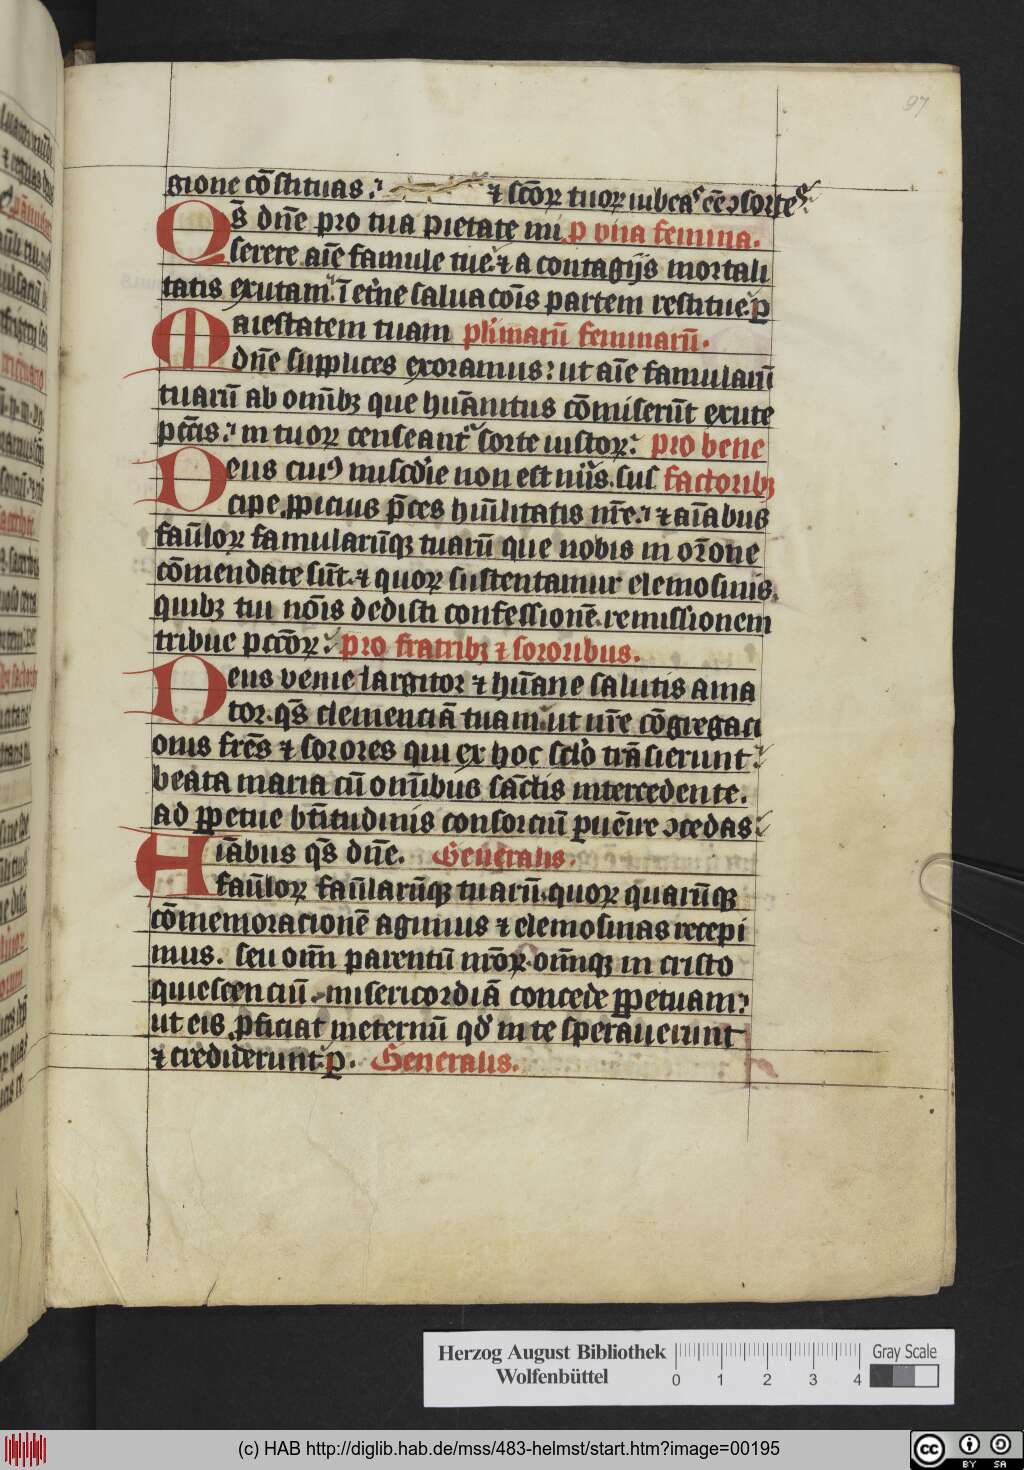 97
gione cōstituas: ⁊ scōꝝ tuoꝝ iubeas eē ↄsortes.
Qs̄ dn̄e pro tua pietate mi p vna femina.
serere aīe famule tue. ⁊ a contagijs mortali
tatis exutam. ī et̓ne saluacōīs partem restitue. p̲
Maiestatem tuam pl̓imarū feminarū.
dn̄e supplices exoramus: ut aīe famularū
tuarū ab omībꝫ que hūanitus cōmiserūt exute
pctīs: in tuoꝝ censeant᷑ sorte iustoꝝ. pro bene
Deus cuiꝯ mis̄cdīe non est nūs. sus factoribꝫ
cipe ꝓpicius p̄ces hūilitatis nr̄e. ⁊ aīabus
faūloꝝ famularūqꝫ tuarū que nobis in or̄one
cōmendate sūt. ⁊ quoꝝ sustentamur elemosinis.
quibꝫ tui noīs dedisti confessionē. remissionem
tribue pccōꝝ. pro fratribꝫ ⁊ sororibus.
Deus venie largitor ⁊ hūane salutis ama
tor. qs̄ clemenciā tuam. ut nr̄e cōgregaci
onis fr̄es ⁊ sorores qui ex hoc sclō trāsierunt.
beata maria cū omībus sāctis intercedente.
ad ꝑpetue bt̄itudinis consorciū puēire ↄcedas.
Aīabus qs̄ dn̄e. Generalis.
faūloꝝ faūlarūqꝫ tuarū. quoꝝ quarūqꝫ
cōmemoracionē agimus ⁊ elemosinas recepi
mus. seu oīm parentū nr̄oꝝ. oīmqꝫ in cristo
quiescenciū misericordiā concede ꝑpetuam:
ut eis ꝓficiat ineternū qd̓ in te sperauerunt
⁊ crediderunt. p̲. Generalis.
Herzog August Bibliothek
Wolfenbüttel
0 1 2 3 4
Gray Scale
(c) HAB http://diglib.hab.de/mss/483-helmst/start.htm?image=00195
cc BY SA